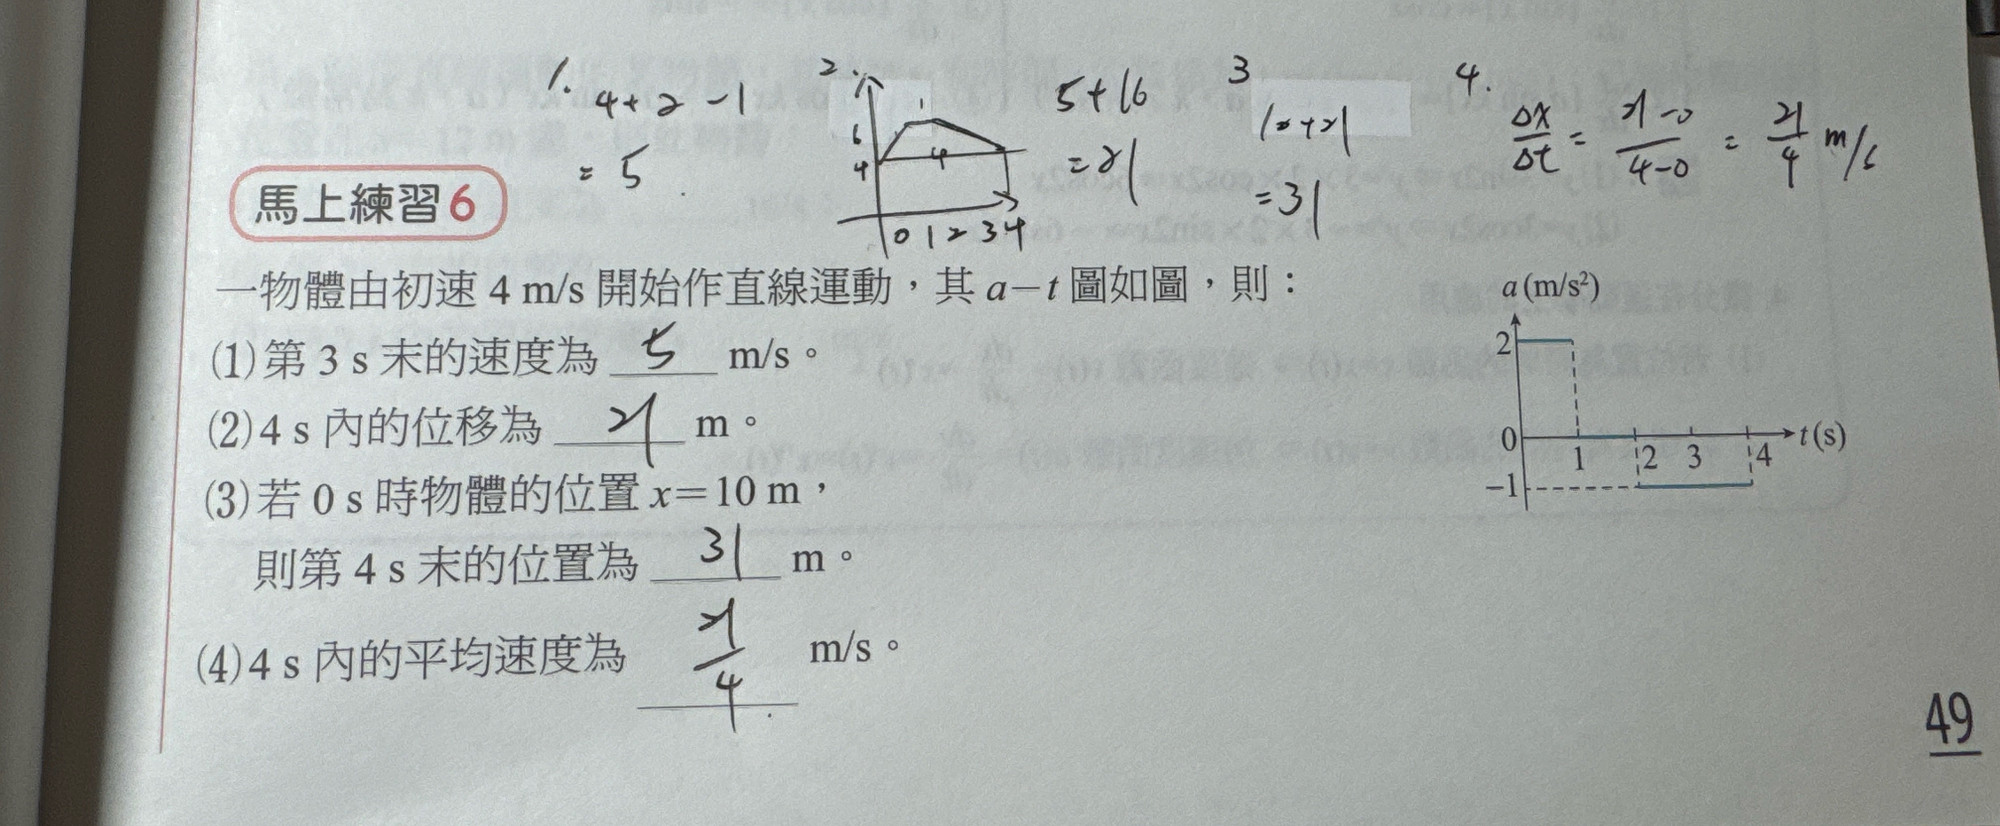 1. 4+2-1
= 5
2.
6
4
1
4
0 1 2 3 4
5+16
=21
3
10+21
=31
4.
Δx/Δt = 21-0/4-0 = 21/4 m/s
馬上練習6
一物體由初速 4 m/s 開始作直線運動，其 a－t 圖如圖，則：
(1)第 3 s 末的速度為 5 m/s。
(2)4 s 內的位移為 21 m。
(3)若 0 s 時物體的位置 x＝10 m，
則第 4 s 末的位置為 31 m。
(4)4 s 內的平均速度為 21/4 m/s。
a(m/s²)
2
0
1 2 3 4
t(s)
-1
49